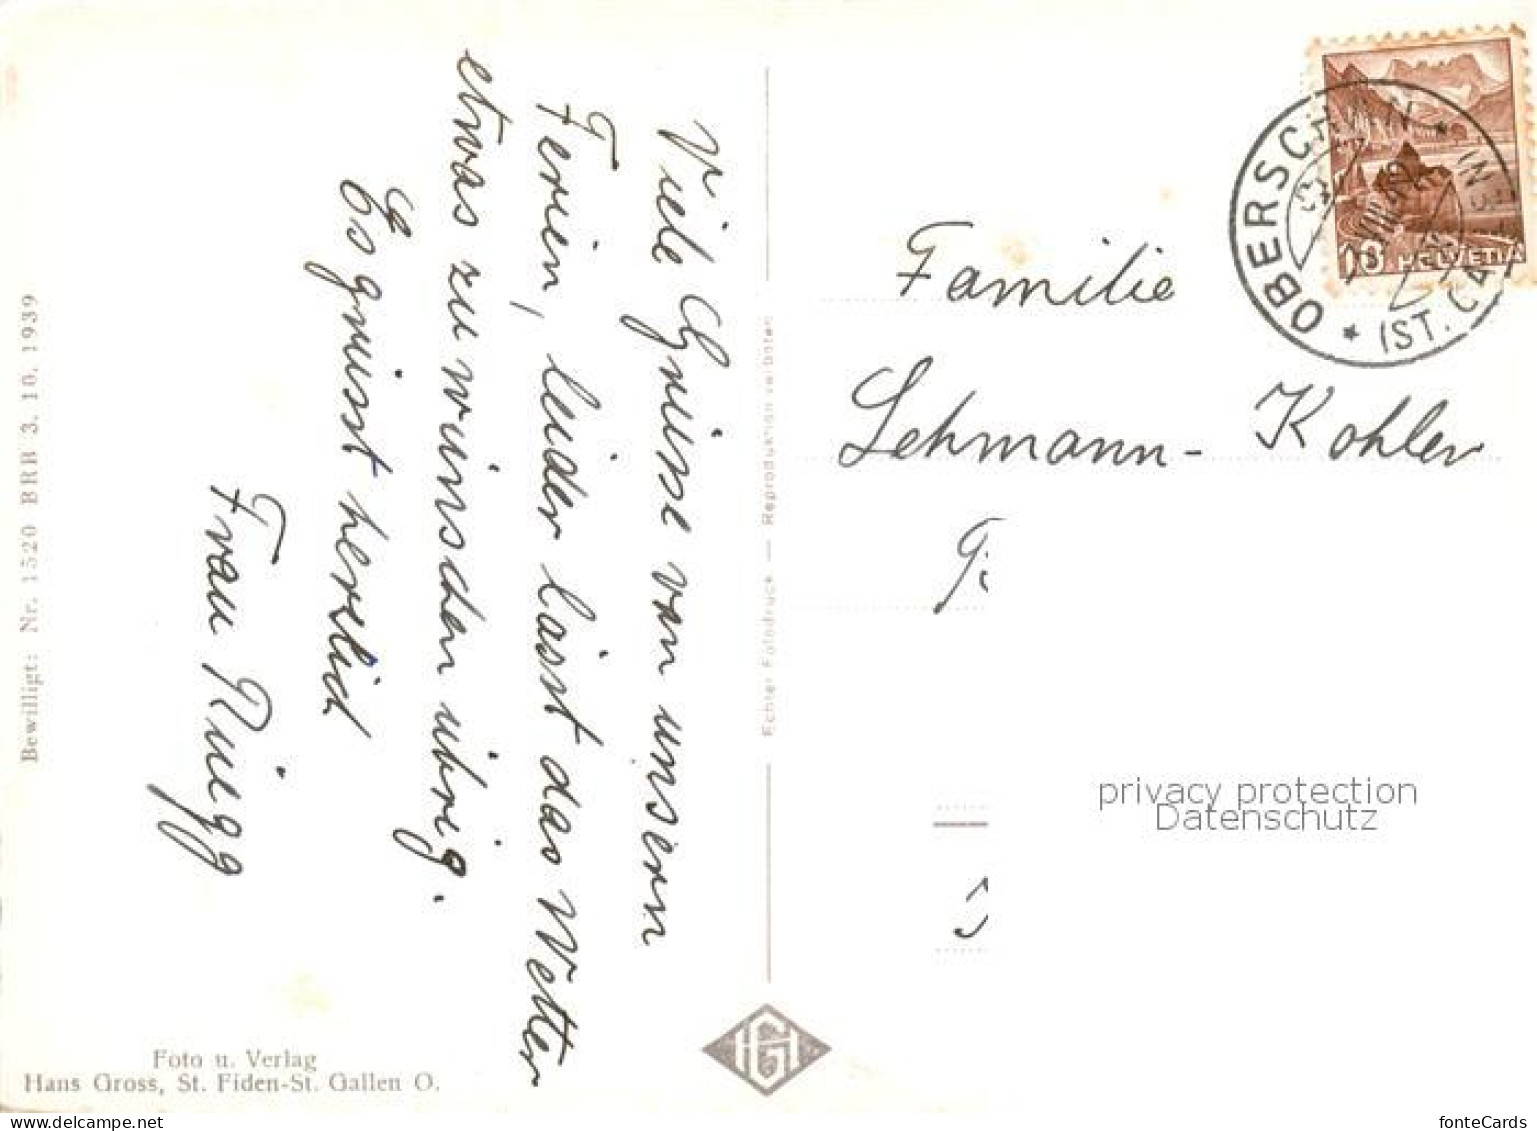 Viele Grüsse von unsern
Ferien, leider lässt das Wetter
etwas zu wünschen übrig.
Es grüsst herzlich
Frau Rüegg
Bewilligt: Nr. 1520 BRB 3. 10. 1939
Foto u. Verlag
Hans Gross, St. Fiden-St. Gallen O.
Echter Fotodruck — Reproduktion verboten
HG
Familie
Lehmann-Kohler
OBERSCHAN
* IST. CA
HELVETIA
privacy protection
Datenschutz
fonteCards